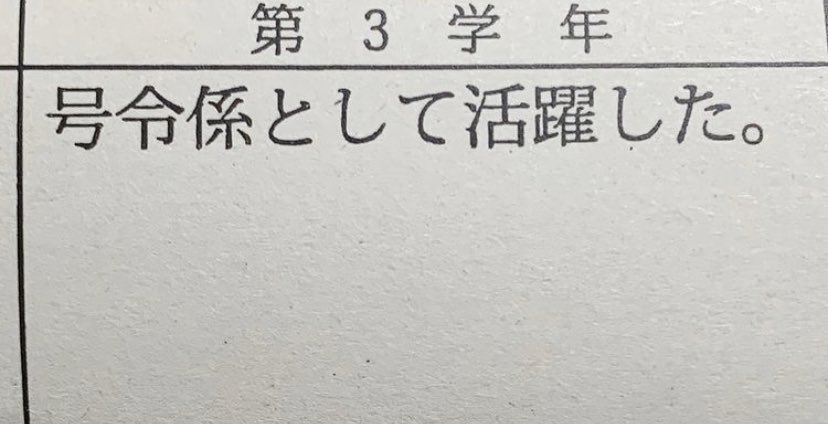 第 3 学 年
号令係として活躍した。